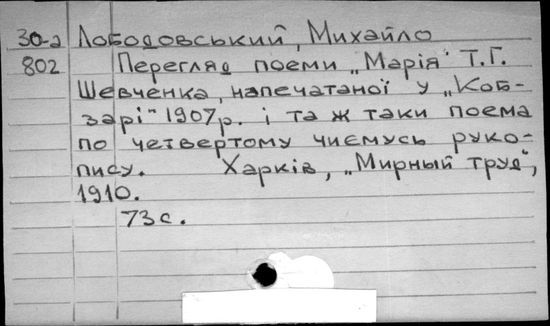 30-а Лободовський, Михайло
802 Перегляд поеми „Марія" Т.Г.
Шевченка, напечатаної у „Коб-
зарі" 1907р. і та ж таки поема
по четвертому чиємусь руко-
пису. Харків, „Мирный труд",
1910.
73 с.